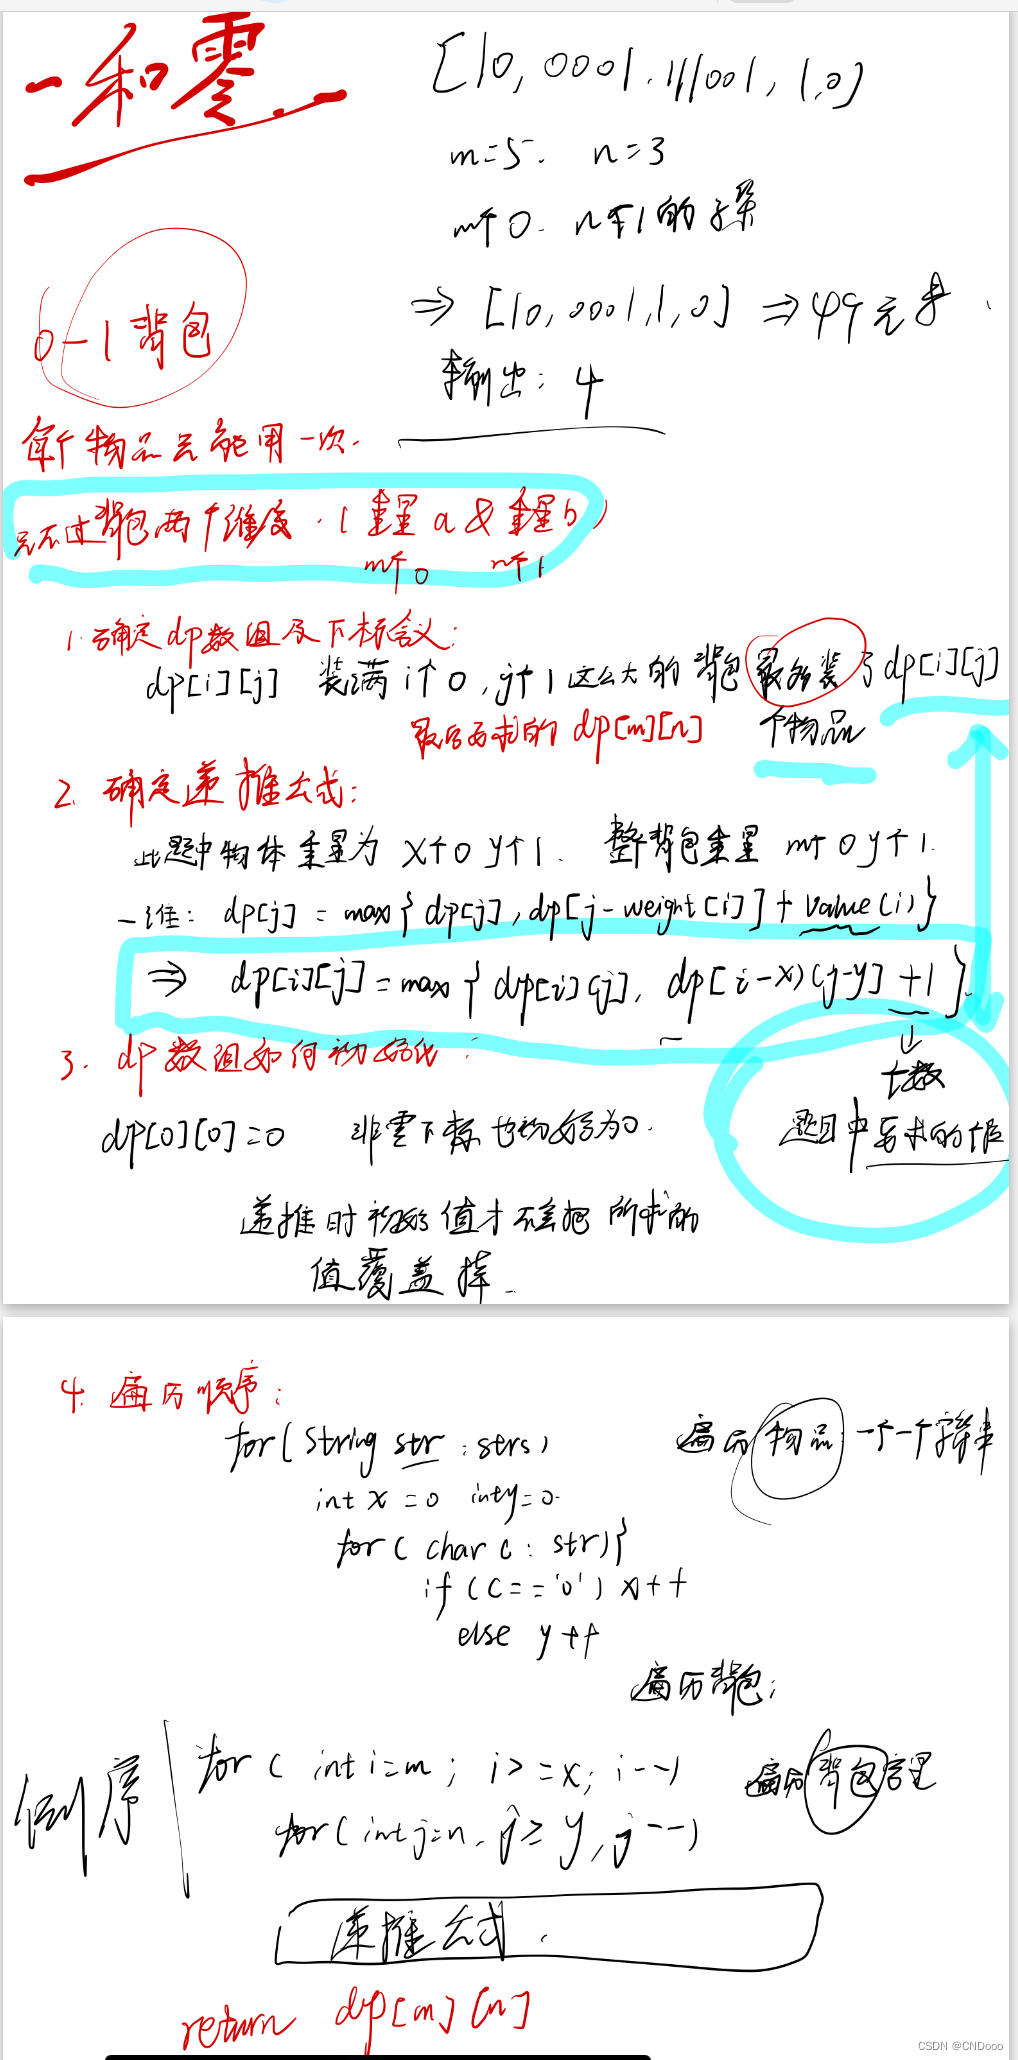 一和零.
[10, 0001, 111001, 1, 0]
m=5. n=3
m个0. n个1的子集
⇒ [10, 0001, 1, 0] ⇒ 4个元素.
输出: 4
0-1背包
每个物品只能用一次.
只不过背包两个维度.(重量a & 重量b)
m个0 n个1
1. 确定dp数组及下标含义:
dp[i][j] 装满i个0, j个1这么大的背包最多装了dp[i][j]
个物品
最后要求的dp[m][n]
2. 确定递推公式:
此题中物体重量为 x个0 y个1. 整个背包重量 m个0 y个1.
一维: dp[j] = max{ dp[j], dp[j-weight[i]] + value(i) }
⇒ dp[i][j] = max { dp[i](j], dp[i-x)(j-y] +1 }.
↓
个数
题目中要求的个数
3. dp数组如何初始化:
dp[0][0]=0 非零下标也初始为0.
递推时初始值才不会把所求的
值覆盖掉.
4. 遍历顺序:
for( String str : strs)
遍历物品: 一个一个字符串
int x = 0 int y=0.
for( char c : str){
if (c=='0') x++
else y++
遍历背包:
倒序
for ( int i=m; i>=x; i--)
遍历背包容量
for(int j=n, j≥y, j--)
递推公式.
return dp[m][n]
CSDN @CNDooo